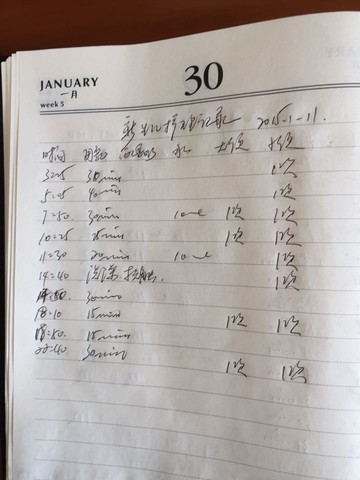 JANUARY
一月
week 5
30
新生儿护理记录 2015-1-11.
时间 母乳 水 大便 换尿
3:25 30mins 1次
5:05 40mins 1次
7:50 30mins 1次 1次
10:25 15mins 1次 1次
11:30 20mins 1次
14:40 洗澡 1次
30mins
18:10 15mins 1次 1次
18:50 15mins
22:40 30mins 1次 1次